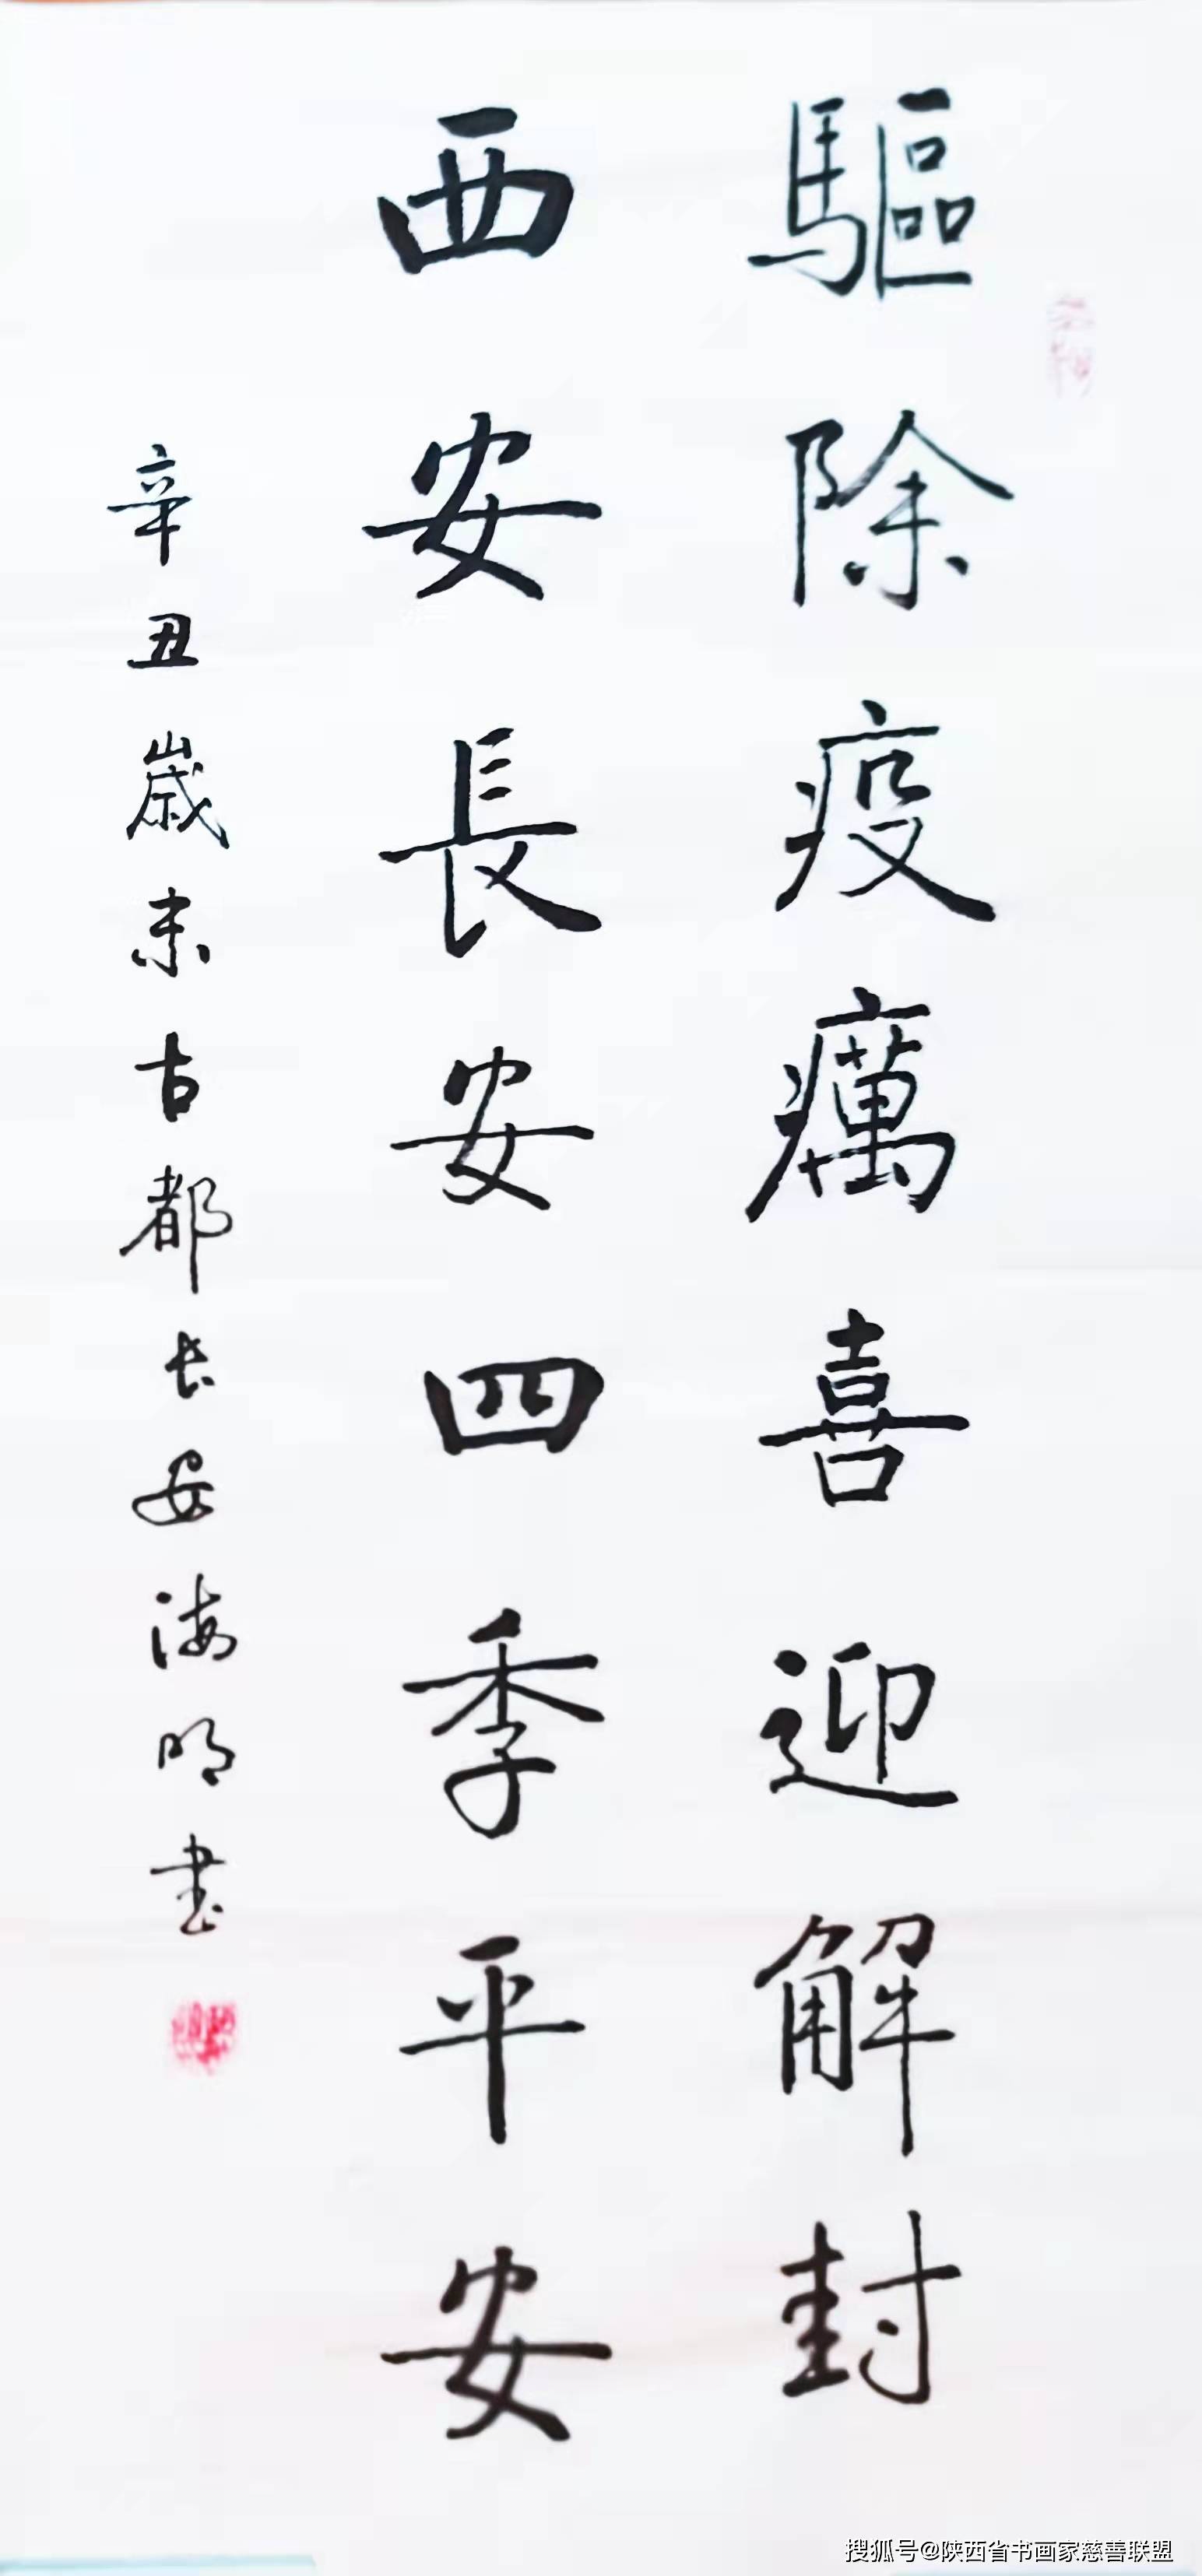 驅除疫癘喜迎解封
西安長安四季平安
辛丑歲末古都长安海明書
搜狐号@陕西省书画家慈善联盟